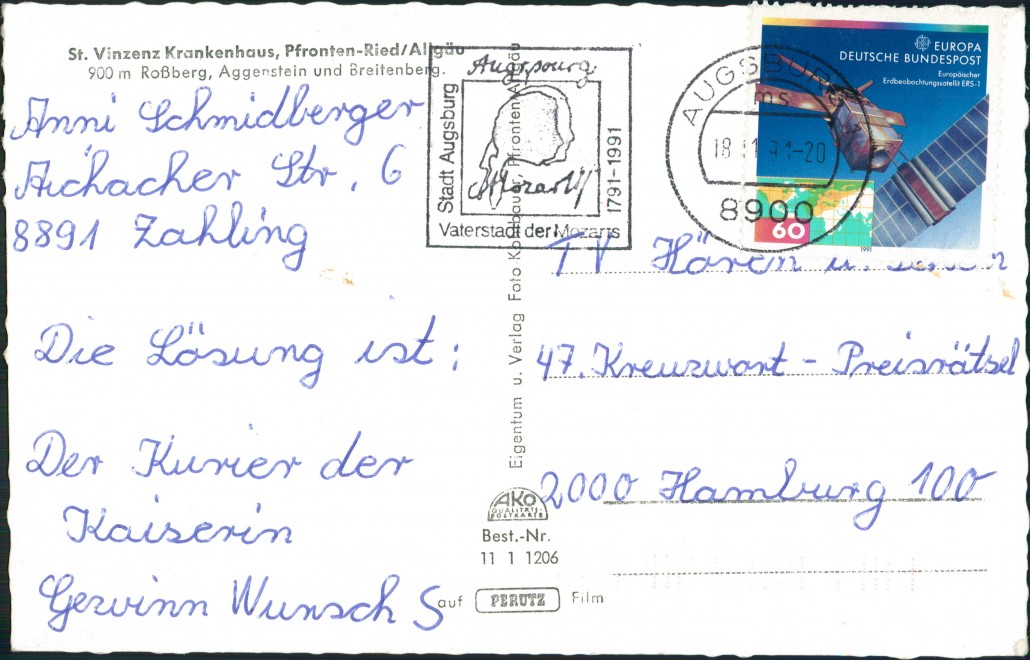 St. Vinzenz Krankenhaus, Pfronten-Ried/Allgäu
900 m Roßberg, Aggenstein und Breitenberg.
Anni Schmidberger
Aichacher Str. 6
8891 Zahling
Die Lösung ist:
Der Kurier der
Kaiserin
Gewinn Wunsch S
Stadt Augsburg
Augspourg
Mozart
1791-1991
Vaterstadt der Mozarts
AUGSBURG
18.11.91-20
8900
EUROPA
DEUTSCHE BUNDESPOST
Europäischer
Erdbeobachtungssatellit ERS-1
60
1991
Eigentum u. Verlag Foto Pfronten/Allgäu
TV Hören u. Sehen
47. Kreuzwort - Preisrätsel
2000 Hamburg 100
AKO
QUALITÄTS-
POSTKARTE
Best.-Nr.
11 1 1206
auf PERUTZ Film